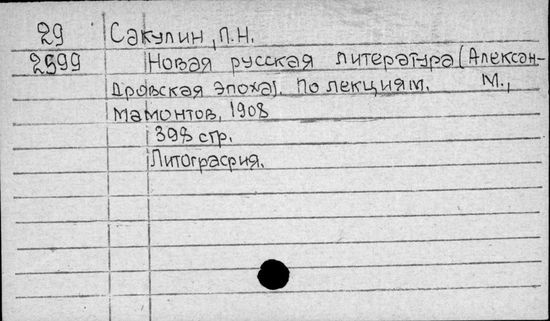 29 Сакулин, П.Н.
2599 Новая русская литература (Алексан-
дровская эпоха). По лекциям. М.,
Мамонтов, 1908
398 стр.
Литография.